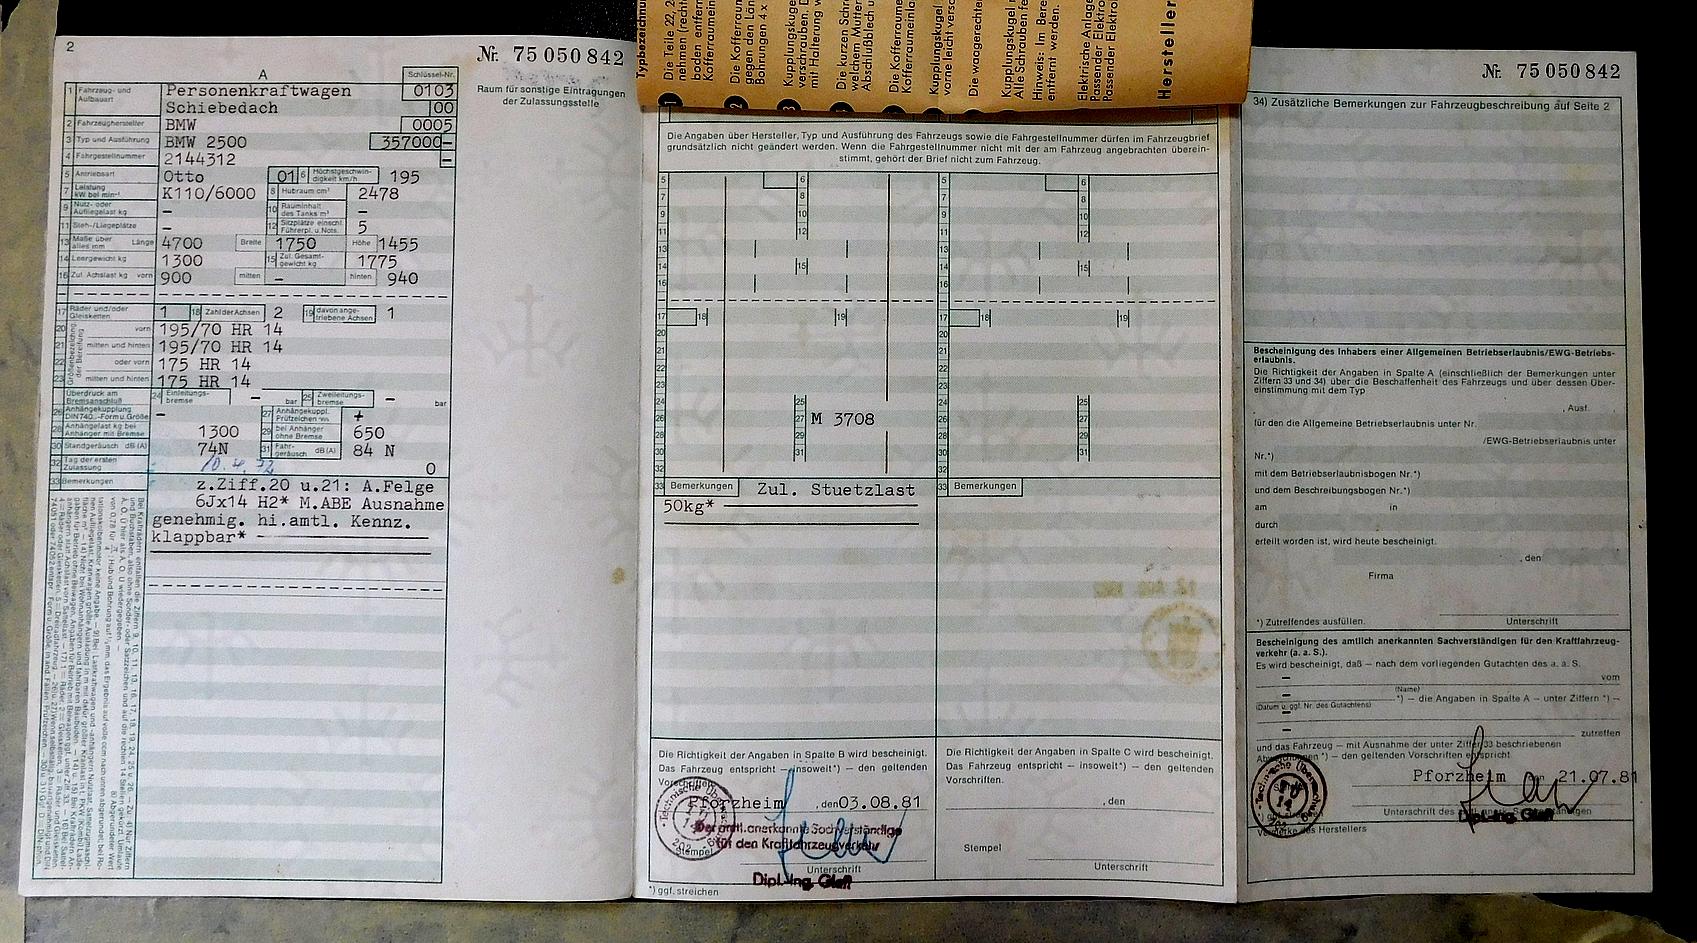 2
Nr. 75 050 842
A
Schlüssel-Nr.
Raum für sonstige Eintragungen
der Zulassungsstelle
1 Fahrzeug- und Aufbauart Personenkraftwagen 0103
Schiebedach 00
2 Fahrzeughersteller BMW 0005
3 Typ und Ausführung BMW 2500 357000-
4 Fahrgestellnummer 2144312 -
5 Antriebsart Otto 01 6 Höchstgeschwindigkeit km/h 195
7 Leistung kW bei min⁻¹ K110/6000 8 Hubraum cm³ 2478
9 Nutz- oder Aufliegelast kg - 10 Rauminhalt des Tanks m³ -
11 Steh-/Liegeplätze - 12 Sitzplätze einschl. Führerpl. u. Nots. 5
13 Maße über alles mm Länge 4700 Breite 1750 Höhe 1455
14 Leergewicht kg 1300 15 Zul. Gesamtgewicht kg 1775
16 Zul. Achslast kg vorn 900 mitten - hinten 940
17 Räder und/oder Gleisketten 1 18 Zahl der Achsen 2 19 davon angetriebene Achsen 1
Größenbezeichnung der Bereifung
20 vorn 195/70 HR 14
21 mitten und hinten 195/70 HR 14
22 oder vorn 175 HR 14
23 mitten und hinten 175 HR 14
Überdruck am Bremsanschluß 24 Einleitungsbremse - bar 25 Zweileitungsbremse - bar
26 Anhängekupplung DIN 740.. Form u. Größe - 27 Anhängekuppl. Prüfzeichen +
28 Anhängelast kg bei Anhänger mit Bremse 1300 29 bei Anhänger ohne Bremse 650
30 Standgeräusch dB (A) 74N 31 Fahrgeräusch dB (A) 84 N
32 Tag der ersten Zulassung 10.4.72 0
33 Bemerkungen z.Ziff.20 u.21: A.Felge
6Jx14 H2* M.ABE Ausnahme
genehmig. hi.amtl. Kennz.
klappbar*
Typbezeichnun
1 Die Teile 22, 2
nehmen (rechte
boden entfern
Kofferraumein
2 Die Kofferraum
gegen den Län
Bohrungen 4 x
3 Kupplungskuge
verschrauben. D
mit Halterung v
4 Die kurzen Schr
welchem Mutter
Abschlußblech u
Die Kofferraum
Kofferraumeinla
Kupplungskugel
vorne leicht versc
Die waagerechter
Kupplungskugel
Alle Schrauben fe
Hinweis: Im Bere
entfernt werden.
Elektrische Anlage
Passender Elektro
Passender Elektro
Hersteller
Die Angaben über Hersteller, Typ und Ausführung des Fahrzeugs sowie die Fahrgestellnummer dürfen im Fahrzeugbrief
grundsätzlich nicht geändert werden. Wenn die Fahrgestellnummer nicht mit der am Fahrzeug angebrachten überein-
stimmt, gehört der Brief nicht zum Fahrzeug.
5 6 5 6
7 8 7 8
9 10 9 10
11 12 11 12
13 13
14 15 14 15
16 16
17 18 19 17 18 19
20 20
21 21
22 22
23 23
24 25 24 25
26 27 M 3708 26 27
28 29 28 29
30 31 30 31
32 32
33 Bemerkungen Zul. Stuetzlast 33 Bemerkungen
50kg*
12. AUG. 1981
Die Richtigkeit der Angaben in Spalte B wird bescheinigt.
Das Fahrzeug entspricht – insoweit*) – den geltenden
Vorschriften.
Pforzheim , den 03.08.81
Der amtl. anerkannte Sachverständige
für den Kraftfahrzeugverkehr
Stempel
Unterschrift
Dipl.-Ing. Glaß
*) ggf. streichen
Die Richtigkeit der Angaben in Spalte C wird bescheinigt.
Das Fahrzeug entspricht – insoweit*) – den geltenden
Vorschriften.
, den
Stempel
Unterschrift
Nr. 75 050 842
34) Zusätzliche Bemerkungen zur Fahrzeugbeschreibung auf Seite 2
Bescheinigung des Inhabers einer Allgemeinen Betriebserlaubnis/EWG-Betriebs-
erlaubnis.
Die Richtigkeit der Angaben in Spalte A (einschließlich der Bemerkungen unter
Ziffern 33 und 34) über die Beschaffenheit des Fahrzeugs und über dessen Über-
einstimmung mit dem Typ
, Ausf.
für den die Allgemeine Betriebserlaubnis unter Nr.
/EWG-Betriebserlaubnis unter
Nr.*)
mit dem Betriebserlaubnisbogen Nr.*)
und dem Beschreibungsbogen Nr.*)
am in
durch
erteilt worden ist, wird heute bescheinigt.
, den
Firma
*) Zutreffendes ausfüllen. Unterschrift
Bescheinigung des amtlich anerkannten Sachverständigen für den Kraftfahrzeug-
verkehr (a. a. S.).
Es wird bescheinigt, daß – nach dem vorliegenden Gutachten des a. a. S.
– vom
(Name)
– *) – die Angaben in Spalte A – unter Ziffern *) –
(Datum u. ggf. Nr. des Gutachtens)
–
– zutreffen
und das Fahrzeug – mit Ausnahme der unter Ziffer 33 beschriebenen
Abweichungen *) – den geltenden Vorschriften entspricht.
Pforzheim den 21.07.81
Technische Überwachung
Unterschrift des a. a. Sachverständigen
Dipl.-Ing. Glaß
Vermerke des Herstellers